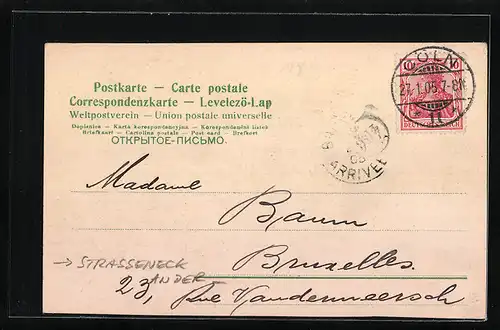 Postkarte — Carte postale
Correspondenzkarte — Levelező-Lap
Weltpostverein — Union postale universelle
Dopisnice — Karta korespondencyjna — Korespondenční lístek
Briefkaart — Cartolina postale — Post card — Brefkort
ОТКРЫТОЕ-ПИСЬМО.
10 10
CÖLN
27.1.05.7-8N.
ARRIVÉE
Madame
Baum
Bruxelles.
→ STRASSENECK
AN DER
23, Rue Vandermeersch